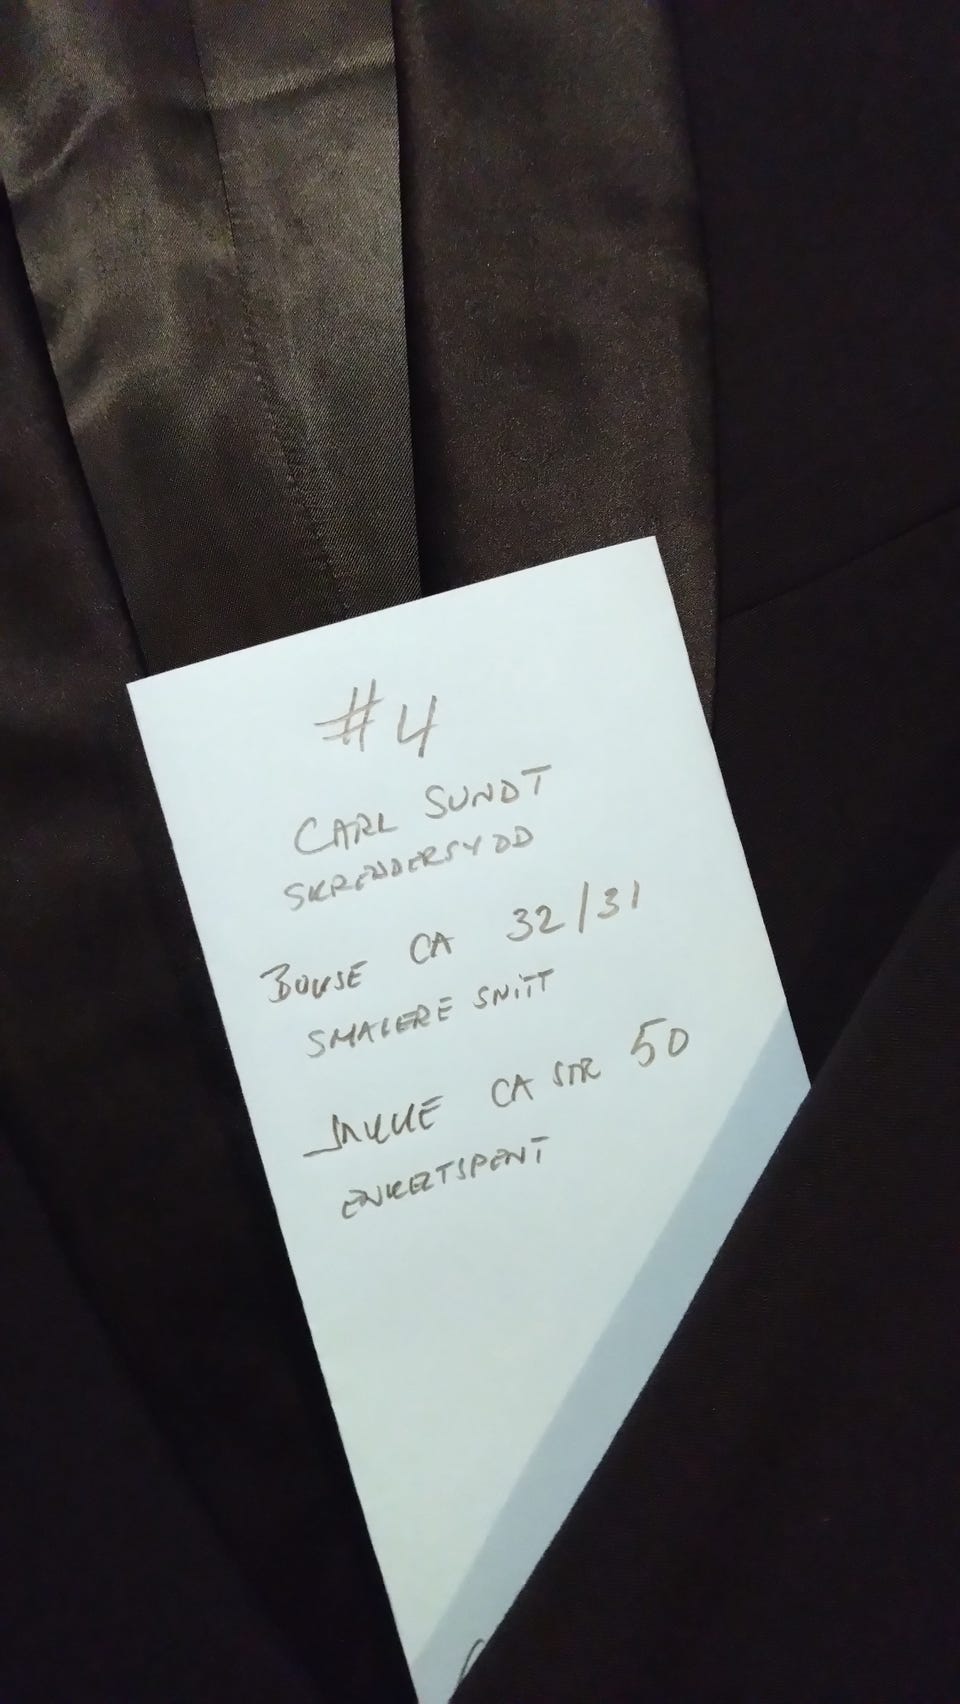 #4
CARL SUNDT
SKREDDERSYDD
BUKSE CA 32/31
SMALERE SNITT
JAKKE CA STR 50
ENKELTSPENT